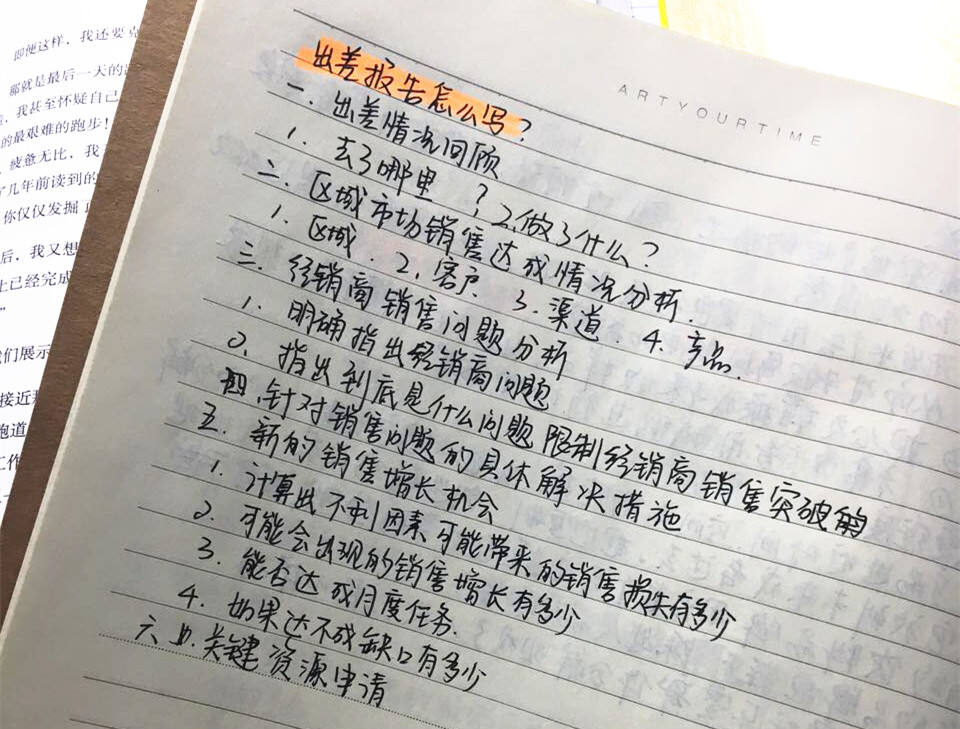 即便这样，我还要
那就是最后一天的
我甚至怀疑自己
的最艰难的跑步！
疲惫无比，我
了几年前读到的
你仅仅发掘
后，我又想
上已经完成
”
们展示
接近
跑道
工作
ARTYOURTIME
出差报告怎么写？
一．出差情况回顾
1．去了哪里？2.做了什么？
二．区域市场销售达成情况分析．
1．区域．2．客户．3．渠道．4．产品．
三．经销商销售问题分析
1．明确指出经销商问题
2．指出到底是什么问题限制经销商销售突破的
四．针对销售问题的具体解决措施
五．新的销售增长机会
1．计算出不利因素可能带来的销售损失有多少
2．可能会出现的销售增长有多少
3．能否达成月度任务．
4．如果达不成缺口有多少
六 关键资源申请